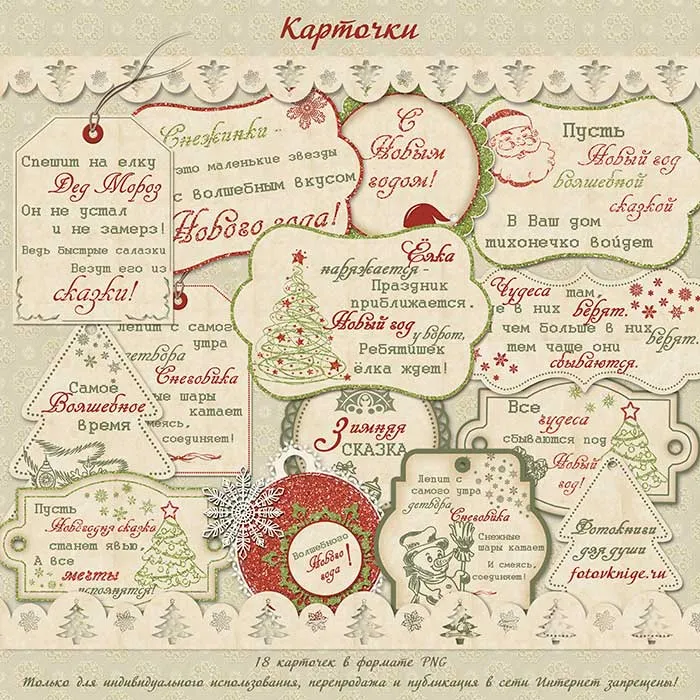 Карточки
Спешит на елку
Дед Мороз
Он не устал
и не замерз!
Ведь быстрые салазки
Везут его из
сказки!
Снежинки -
это маленькие звезды
с волшебным вкусом
Нового года!
С
Новым
годом!
Пусть
Новый год
волшебной
сказкой
В Ваш дом
тихонечко войдет
Ёлка
наряжается -
Праздник
приближается.
Новый год
у ворот,
Ребятишек
ёлка ждет!
Чудеса там,
где в них верят.
чем больше в них верят,
тем чаще они
сбываются.
Лепит с самого
утра
детвора
Снеговика
шары катает
смеясь,
соединяет!
Самое
Волшебное
время
Зимняя
СКАЗКА
Все
чудеса
сбываются под
Новый
год!
Пусть
Новогодняя сказка
станет явью,
А все
мечты
исполнятся!
Волшебного
Нового
года!
Лепит с
самого утра
детвора
Снеговика
Снежные
шары катает
И смеясь,
соединяет!
Фотокниги
для души
fotovknige.ru
18 карточек в формате PNG
Только для индивидуального использования, перепродажа и публикация в сети Интернет запрещены!